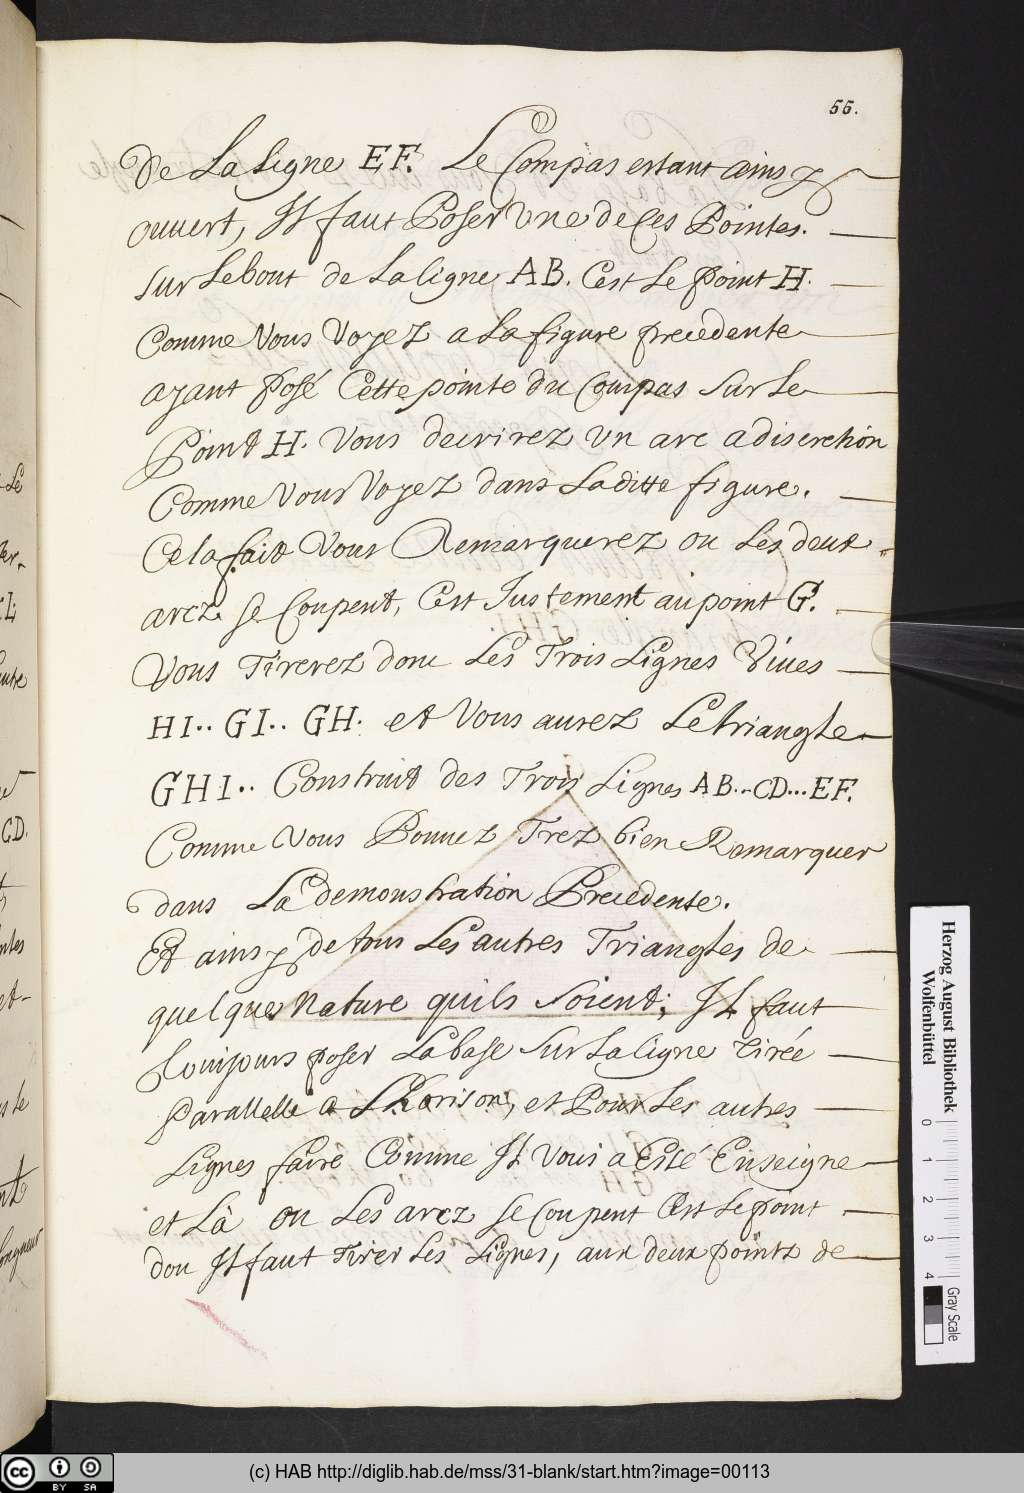 55.
De La ligne EF. Le Compas estant ainsy
ouuert, Il faut Poser Vne de Ces Pointes.
sur Le bout de La ligne AB. Cest Le point H.
Comme Vous Voyez a La figure precedente
ayant Posé Cette pointe du Compas sur Le
Point H. Vous decrirez vn arc a discretion
Comme Vous Voyez dans Laditte figure.
Cela fait Vous Remarquerez ou Les deux
arcz se Coupent, Cest Justement au point G.
Vous Tirerez donc Les Trois Lignes Viues
HI.. GI.. GH. et Vous aurez Le triangle
GHI.. Construit des Trois Lignes AB..CD...EF.
Comme Vous Pouuez Trez bien Remarquer
dans La demonstration Precedente.
Et ainsy de tous Les autres Triangles de
quelque nature quils soient; Il faut
toujours poser La base sur La ligne tirée
parallelle a L'horison, et Pour Les autres
Lignes faire Comme Il Vous a Esté Enseigne
et Là ou Les arcz se Coupent Cest Le point
dou Il faut Tirer Les Lignes, aux deux pointz de
Herzog August Bibliothek
Wolfenbüttel
0 1 2 3 4
Gray Scale
cc BY SA
(c) HAB http://diglib.hab.de/mss/31-blank/start.htm?image=00113